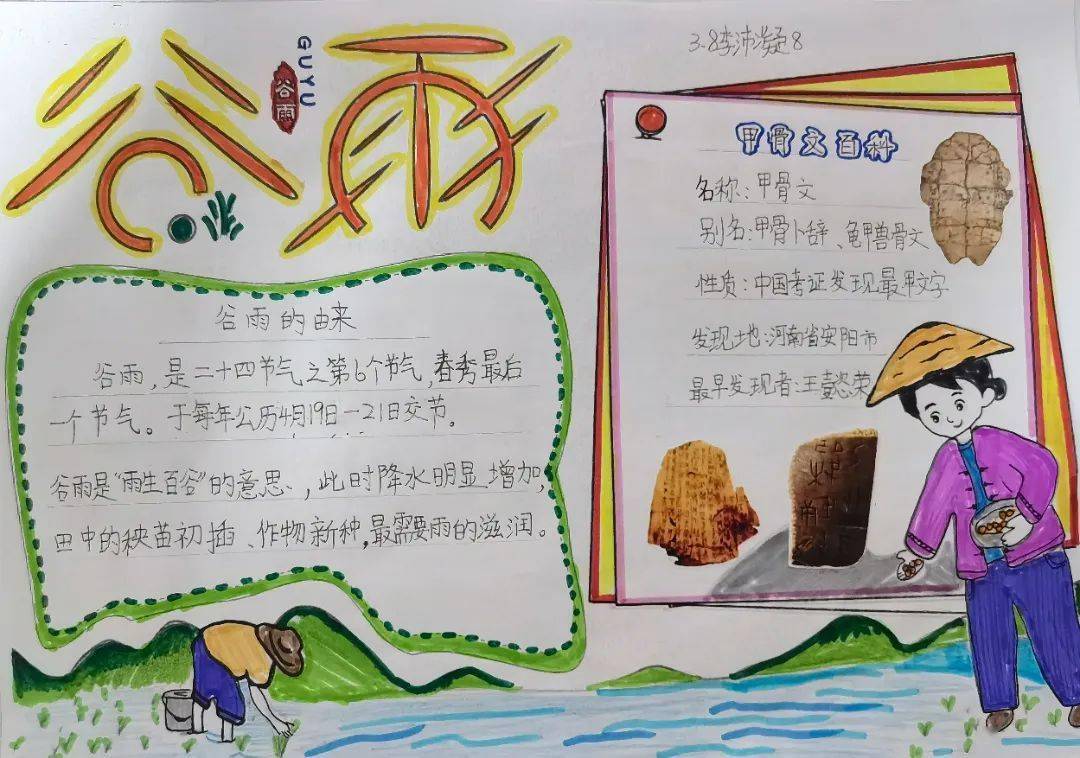 谷雨
GUYU
谷雨
3.8李沛凝8
谷雨的由来
谷雨,是二十四节气之第6个节气,春秀最后
一个节气。于每年公历4月19日—21日交节。
谷雨是“雨生百谷”的意思、,此时降水明显增加,
田中的秧苗初插、作物新种,最需要雨的滋润。
甲骨文百科
名称:甲骨文
别名:甲骨卜辞、龟甲兽骨文
性质:中国考证发现最早文字
发现地:河南省安阳市
最早发现者:王懿荣